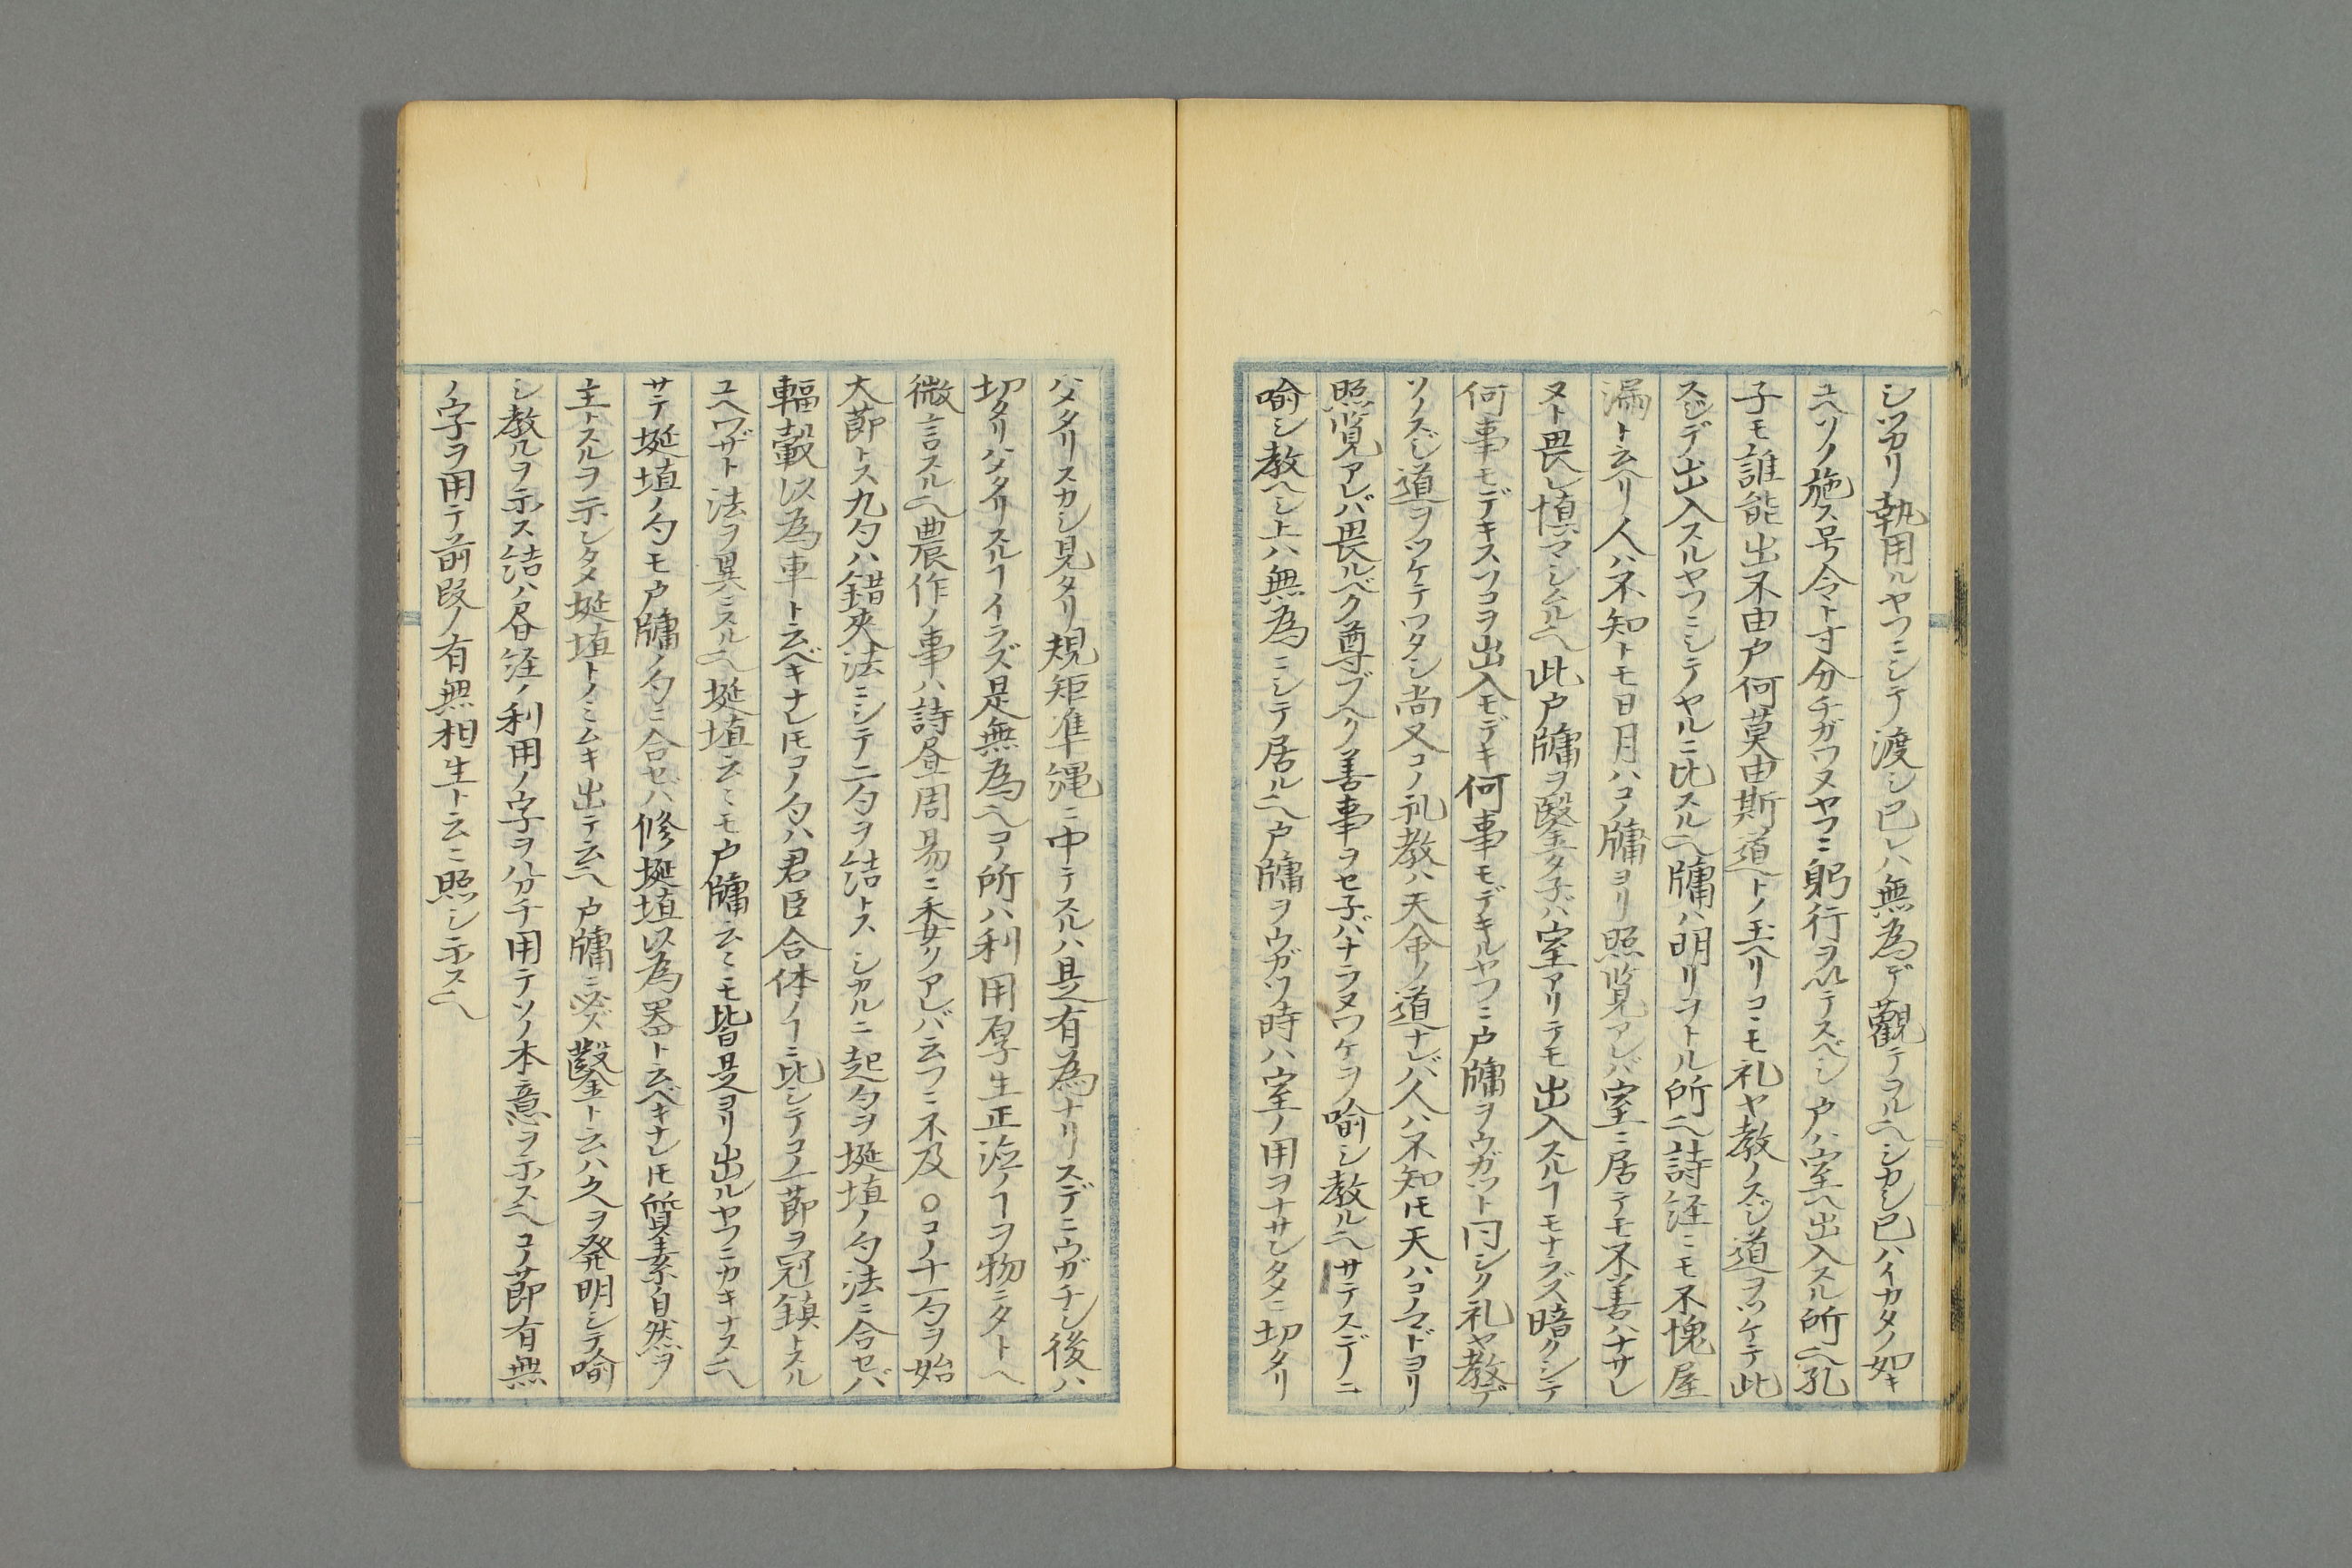 シツカリ執用ルヤフニシテ渡シ已レハ無為デ觀テヲルヘシカシ已ハイカタノ如キ
ユヘソノ施ス号令ト寸分チガワヌヤフニ躬行ヲ以テスベシ戸ハ室ヘ出入スル所ヘ孔
子モ誰能出不由戸何莫由斯道ヘトノ玉ヘリコヽモ礼ヤ教ノスジ道ヲツケテ此
スジデ出入スルヤフニシテヤルニ比スルヘ牗ハ明リヲトル所ヘ詩経ニモ不愧屋
漏ト云ヘリ人ハ不知トモ日月ハコノ牗ヨリ照覧アレバ室ニ居テモ不善ハナサレ
ヌト畏レ慎マシムルヘ此戸牗ヲ鑿タ子バ室アリテモ出入スルヿモナラズ暗クシテ
何事モデキスソコヲ出入モデキ何事モデキルヤフニ戸牗ヲウガツト同シク礼ヤ教デ
ソノスジ道ヲツケテワタシ尚又コノ礼教ハ天命ノ道ナレバ人ハ不知𪜈天ハコノマドヨリ
照覧アレバ畏ルベク尊ブヘク善事ヲセ子バナラヌワケヲ喩シ教ルヘサテスデノニ
喩シ教ヘシ上ハ無為ニシテ居ルヘ戸牗ヲウガツ時ハ室ノ用ヲナサンタメニ切タリ
ハメタリスカシ見タリ規矩準縄ニ中テスルハ是有為ナリスデニウガチシ後ハ
切タリハメタリスルヿイラズ是無為ヘコノ所ハ利用厚生正治ノヿヲ物ニタトヘ
微言スルヘ農作ノ事ハ詩昼周易ニ委リアレバ云フニ不及○コノ十一勺ヲ始
大節トス九勺ハ錯夾法ニシテ二勺ヲ結トスシカルニ起勺ヲ埏埴ノ勺法ニ合セバ
輻轂以為車ト云ベキナレ𪜈コノ勺ハ君臣合体ノヿニ比シテコノ一節ヲ冠鎮トスル
ユヘワザト法ヲ異ニスルヘ埏埴云云モ戸牗云云モ皆是ヨリ出ルヤフニカキナスヘ
サテ埏埴ノ勺モ戸牗ノ勺ニ合セハ修埏埴以為器ト云ベキナレ𪜈質素自然ヲ
主トスルヲ示シタメ埏埴トノミムキ出テ云ヘ戸牗ニ必ズ鑿ト云ハ久ヲ発明シテ喩
シ教ルヲ示ス結ハ昼経ノ利用ノ字ヲ分チ用テソノ本意ヲ示スヘコノ節有無
ノ字ヲ用テ前段ノ有無相生ト云ニ照シ示スヘ